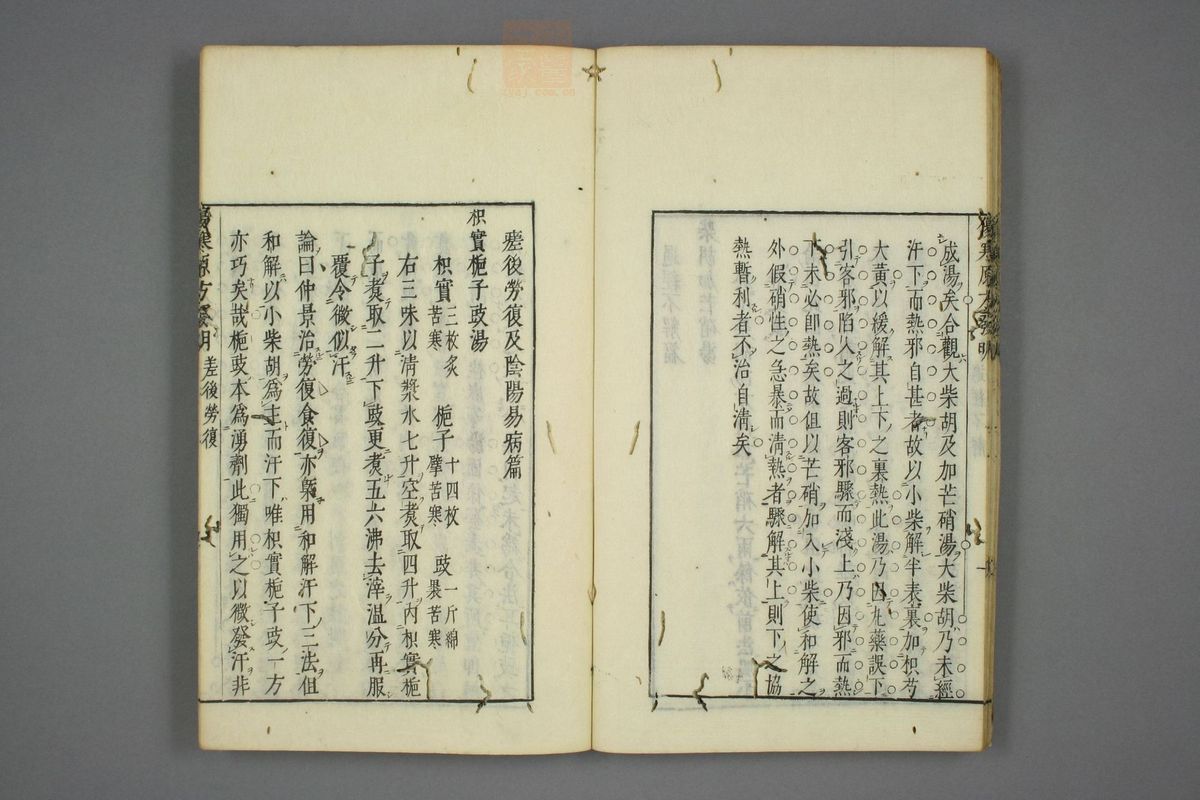 成湯矣合觀大柴胡及加芒硝湯大柴胡乃未經
汗下而熱邪自甚者故以小柴解半表裏加枳芍
大黃以緩解其上下之裏熱此湯乃因丸藥誤下
引客邪陷入之過則客邪驟而淺上乃因邪而熱
下未必即熱矣故但以芒硝加入小柴使和解之
外假硝性之急暴而清熱者驟解其上則下之協
熱暫利者不治自清矣
差後勞復及陰陽易病篇
枳實梔子豉湯
枳實三枚炙苦寒 梔子十四枚擘苦寒 豉一斤綿裹苦寒
右三味以清漿水七升空煮取四升內枳實梔
子煮取二升下豉更煮五六沸去滓溫分再服
覆令微似汗
論曰仲景治勞復食復亦槩用和解汗下三法但
和解以小柴胡爲主而汗下唯枳實梔子豉一方
亦巧矣哉梔豉本爲湧劑此獨用之以微發汗非
傷寒原方發明 差後勞復